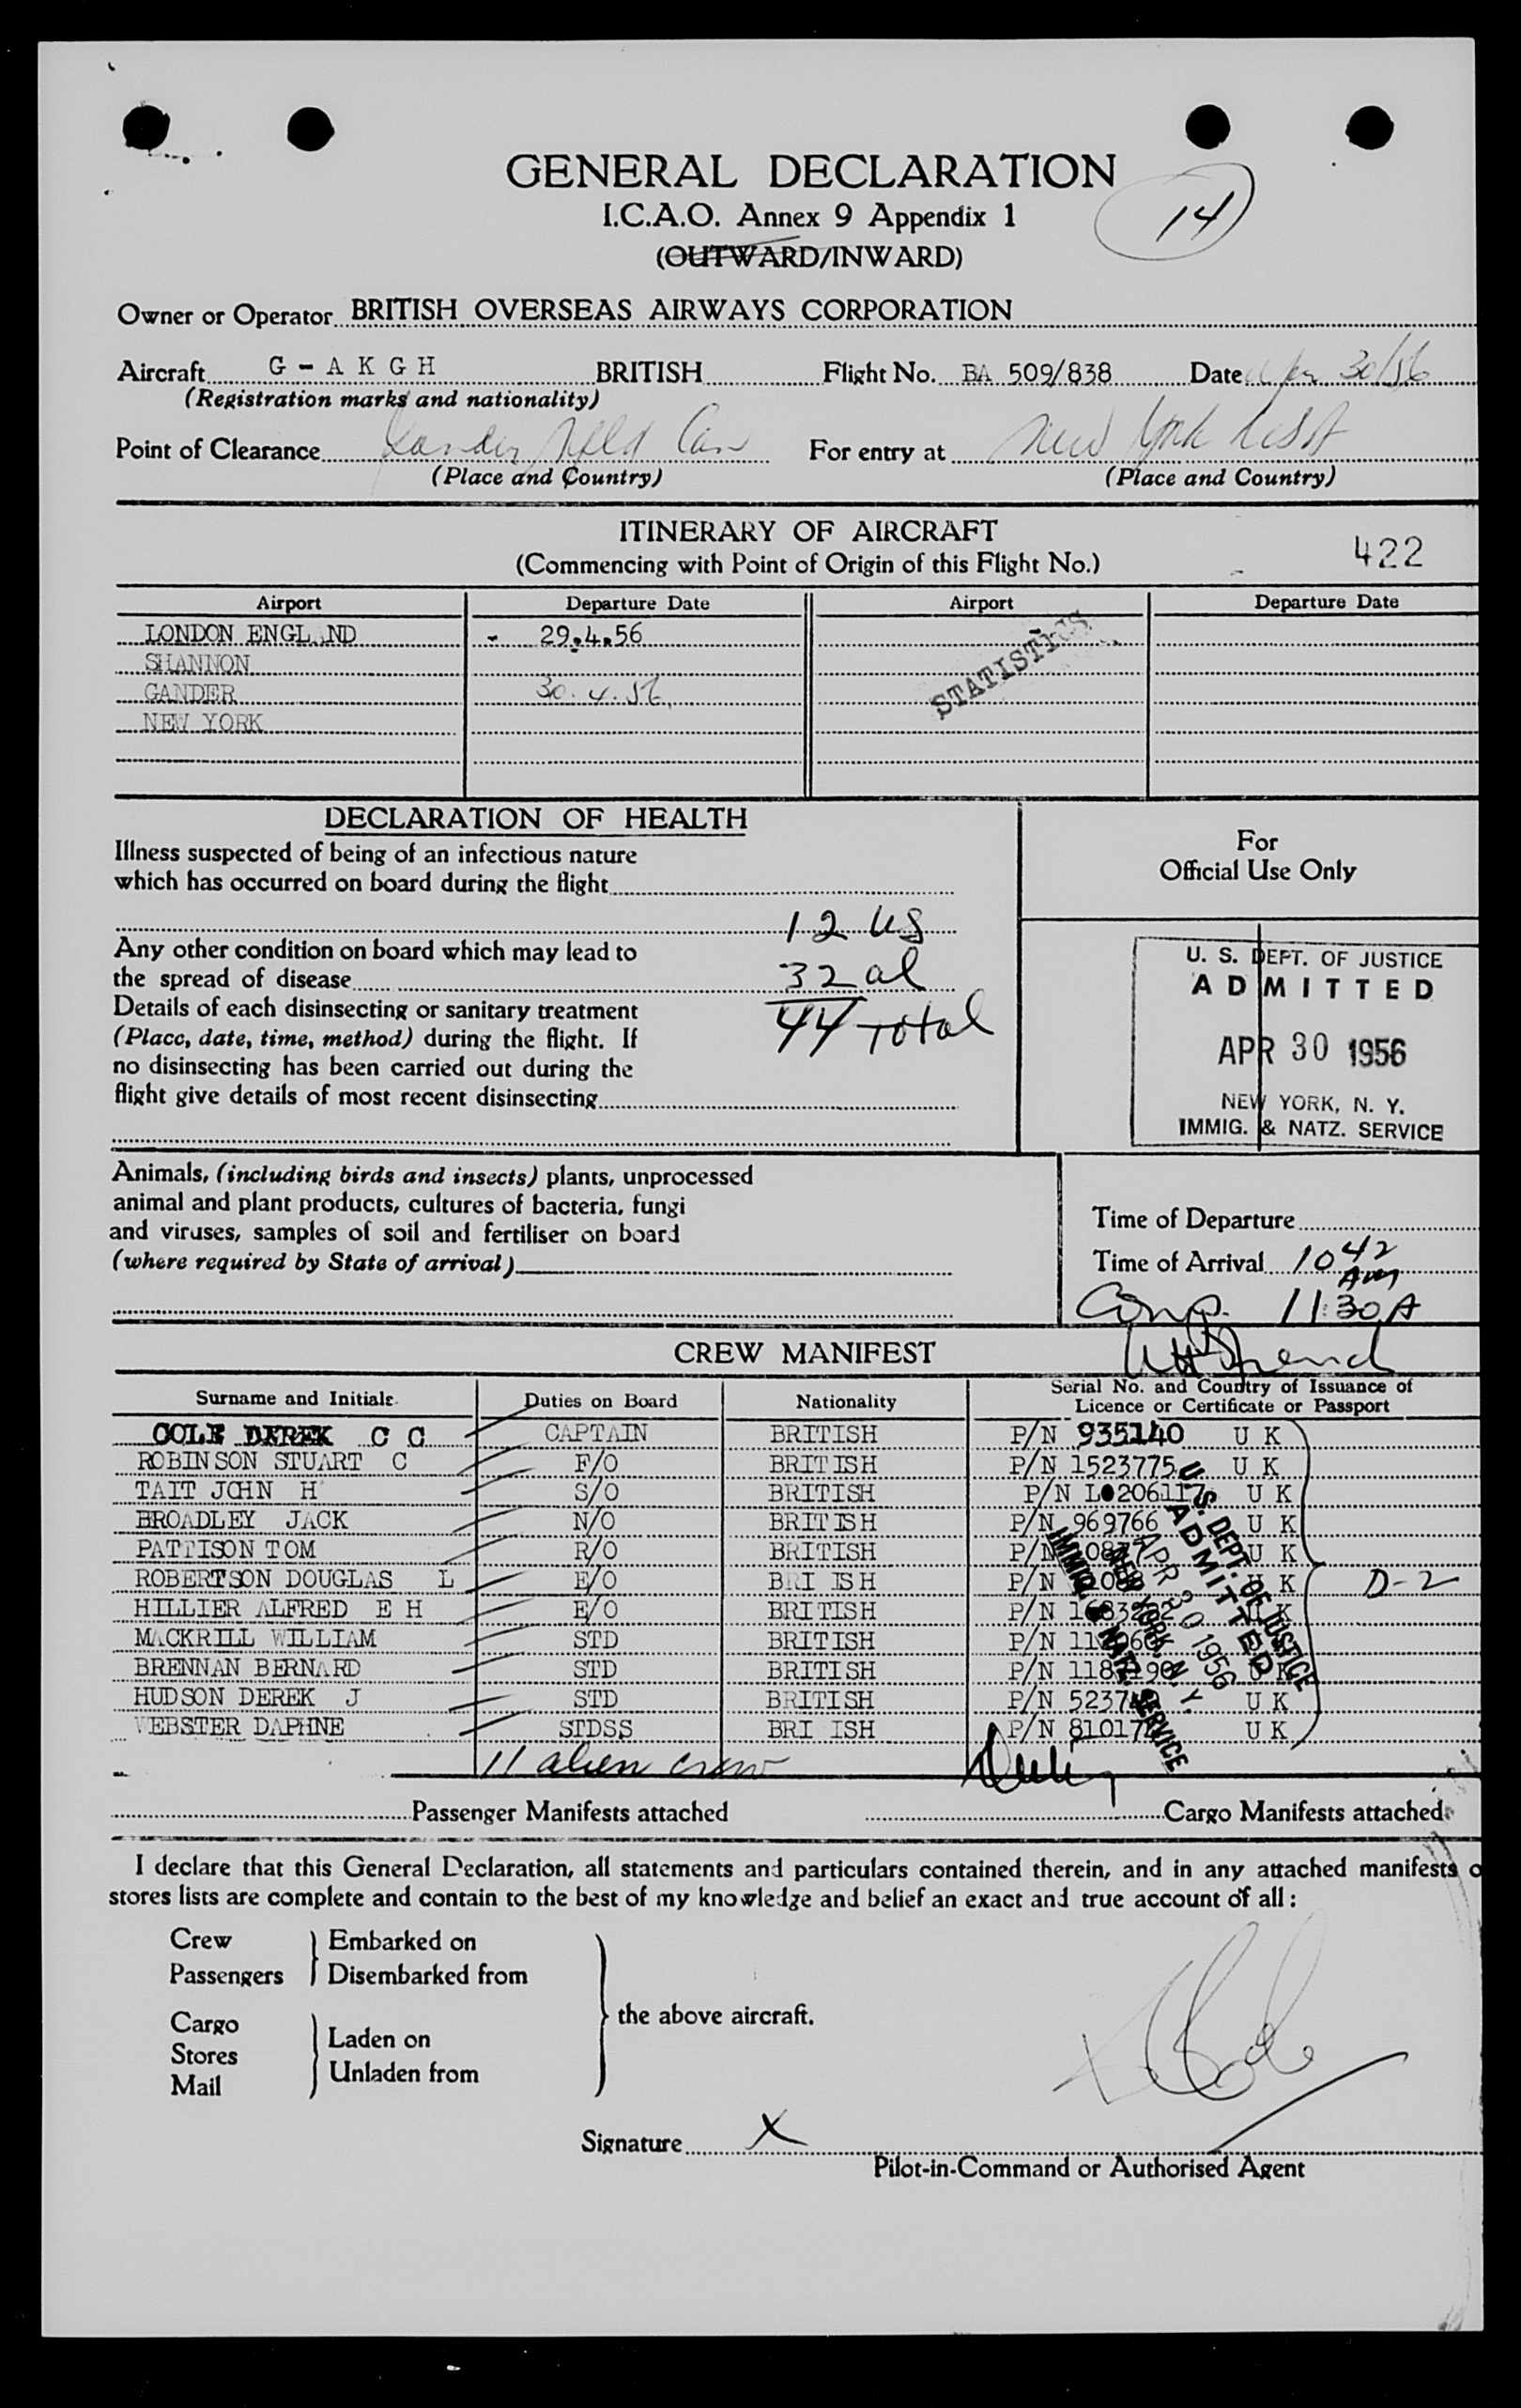 GENERAL DECLARATION
I.C.A.O. Annex 9 Appendix 1
14
(OUTWARD/INWARD)
Owner or Operator BRITISH OVERSEAS AIRWAYS CORPORATION
Aircraft G - A K G H BRITISH Flight No. BA 509/838 Date Apr 30/56
(Registration marks and nationality)
Point of Clearance Gander Nfld Can For entry at New York
(Place and Country) (Place and Country)
ITINERARY OF AIRCRAFT
(Commencing with Point of Origin of this Flight No.) 422
Airport Departure Date Airport Departure Date
LONDON ENGL ND - 29.4.56
SHANNON
GANDER 30.4.56
NEW YORK
STATISTICS
DECLARATION OF HEALTH
Illness suspected of being of an infectious nature
which has occurred on board during the flight
Any other condition on board which may lead to
the spread of disease
Details of each disinsecting or sanitary treatment
(Place, date, time, method) during the flight. If
no disinsecting has been carried out during the
flight give details of most recent disinsecting
12 US
32 al
44 Total
For
Official Use Only
U. S. DEPT. OF JUSTICE
ADMITTED
APR 30 1956
NEW YORK, N. Y.
IMMIG. & NATZ. SERVICE
Animals, (including birds and insects) plants, unprocessed
animal and plant products, cultures of bacteria, fungi
and viruses, samples of soil and fertiliser on board
(where required by State of arrival)
Time of Departure
Time of Arrival 1042 Am
Comp. 11:30 A
CREW MANIFEST
Surname and Initials Duties on Board Nationality Serial No. and Country of Issuance of Licence or Certificate or Passport
COLE DEREK C C CAPTAIN BRITISH P/N 935140 U K
ROBINSON STUART C F/O BRITISH P/N 1523775 U K
TAIT JOHN H S/O BRITISH P/N L0206117 U K
BROADLEY JACK N/O BRITISH P/N 969766 U K
PATTISON TOM R/O BRITISH P/N U K
ROBERTSON DOUGLAS L E/O BRI ISH P/N U K D-2
HILLIER ALFRED E H E/O BRITISH P/N U K
MACKRILL WILLIAM STD BRITISH P/N
BRENNAN BERNARD STD BRITISH P/N U K
HUDSON DEREK J STD BRITISH P/N U K
WEBSTER DAPHNE STDSS BRI ISH P/N U K
U.S. DEPT. OF JUSTICE
ADMITTED
APR 30 1956
NEW YORK, N. Y.
IMMIG. & NATZ. SERVICE
11 alien crew
Passenger Manifests attached Cargo Manifests attached
I declare that this General Declaration, all statements and particulars contained therein, and in any attached manifests o
stores lists are complete and contain to the best of my knowledge and belief an exact and true account of all :
Crew Embarked on
Passengers Disembarked from
the above aircraft.
Cargo
Stores Laden on
Mail Unladen from
Signature X
Pilot-in-Command or Authorised Agent